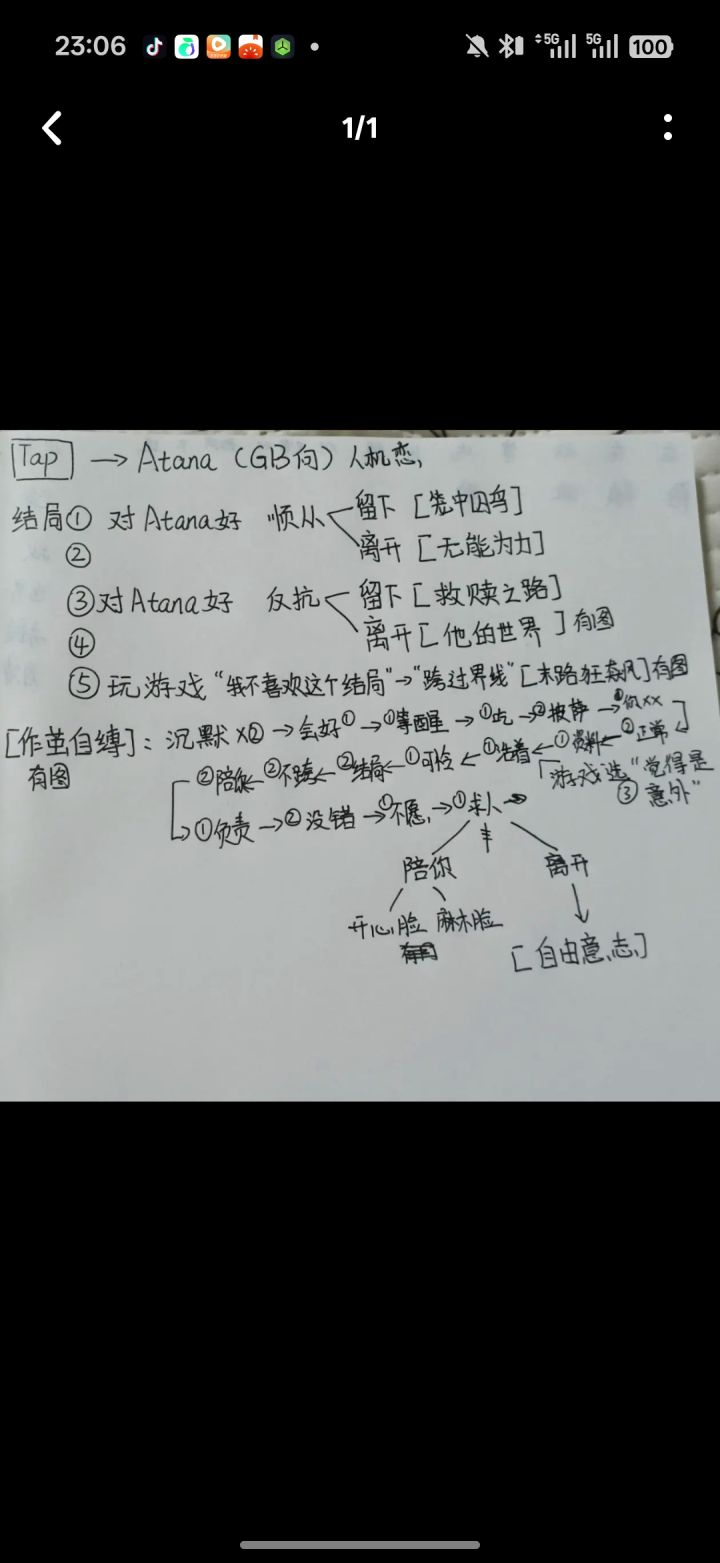 23:06 5G 5G 100
1/1
Tap → Atana (GB向) 人机恋,
结局① 对Atana好 顺从 留下 [笼中囚鸟]
② 离开 [无能为力]
③对Atana好 反抗 留下 [救赎之路]
④ 离开 [他的世界] 有图
⑤ 玩游戏 "我不喜欢这个结局"→"跨过界线" [末路狂飙] 有图
[作茧自缚]: 沉默 ×② → 会好① → ①等醒 → ①吃 → ②披萨 → 你xx
有图 ②陪你 ← ②不跨 ← ②结局 ← ①可怜 ← ①活着 ← ①资料 ← ②正常
「游戏选"觉得是
③ 意外"
→ ①负责 → ②没错 → ①不愿, → ①求人 →
陪你 离开
开心脸 麻木脸
有图 [自由意志]